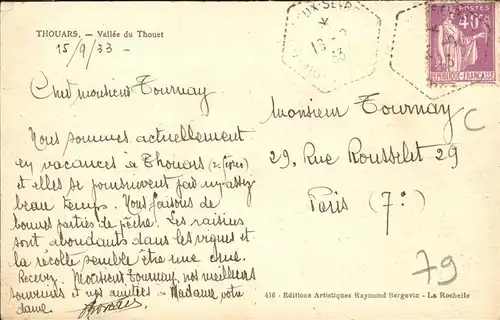 THOUARS. — Vallée du Thouet
15/9/33 -
Cher monsieur Tournay
Nous sommes actuellement
en vacances à Thouars (2 Sèvres)
et elles se poursuivent par un assez
beau temps. Nous faisons de
bonnes parties de pêche. Les raisins
sont abondants dans les vignes et
la récolte semble être une
Recevez Monsieur Tournay, nos meilleurs
souvenirs et nos amitiés à Madame, votre
dame.
40c
POSTES
REPUBLIQUE FRANÇAISE
Monsieur Tournay
29, Rue Rousselet 29
Paris (7e)
C
79
416 - Editions Artistiques Raymond Bergevin - La Rochelle